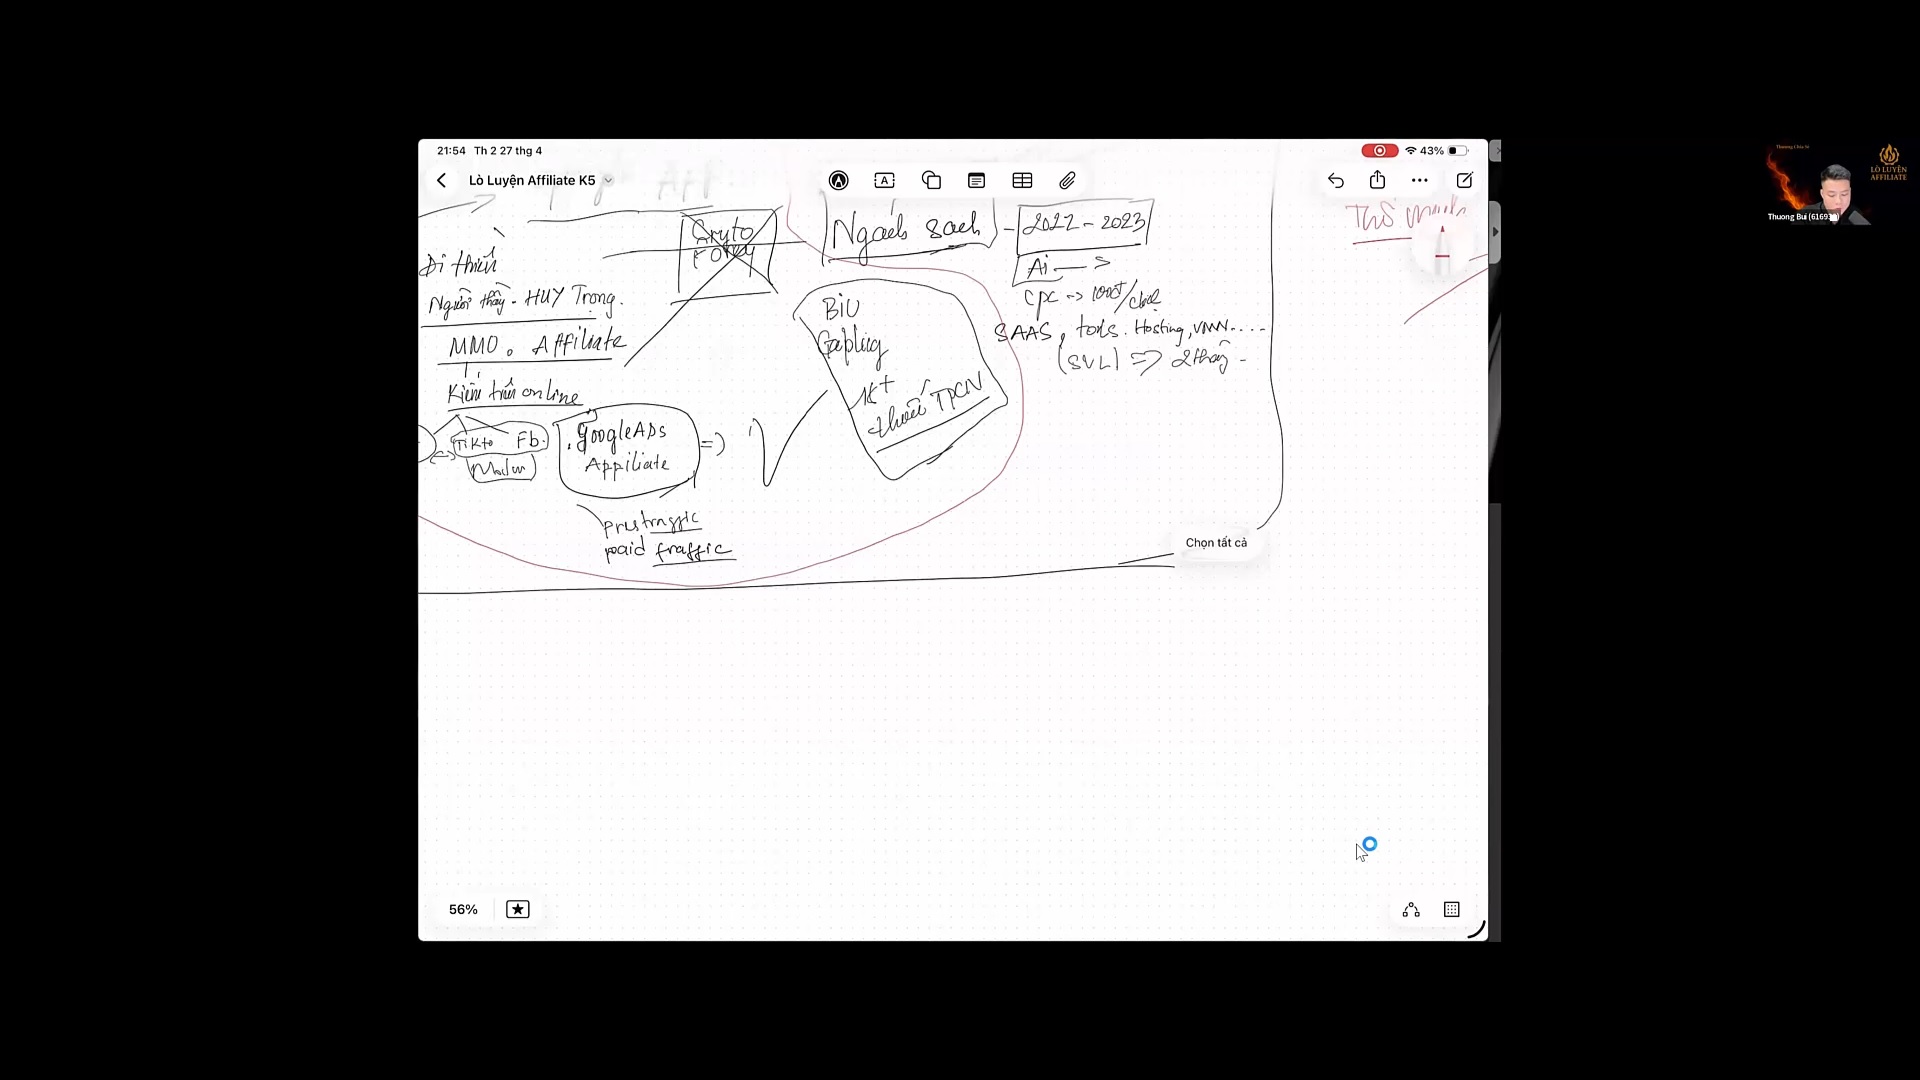 21:54 Th 2 27 thg 4
43%
Lò Luyện Affiliate K5
Thương Chia Sẻ
LÒ LUYỆN
AFFILIATE
Thuong Bui (61693
Crypto
Ngách sạch - 2022 - 2023
Đi thiến
Người thầy - HUY Trọng.
MMO. Affiliate
Kiếm tiền online
TikTo Fb.
.google ADS =>
Appiliate
traffic
paid traffic
BiU
1K+
thuốc TPCN
Ai → S
cpc => 100đ/click
SAAS, tools. Hosting, VMN....
(SVL) => 2 tháng -
Chọn tất cả
56%